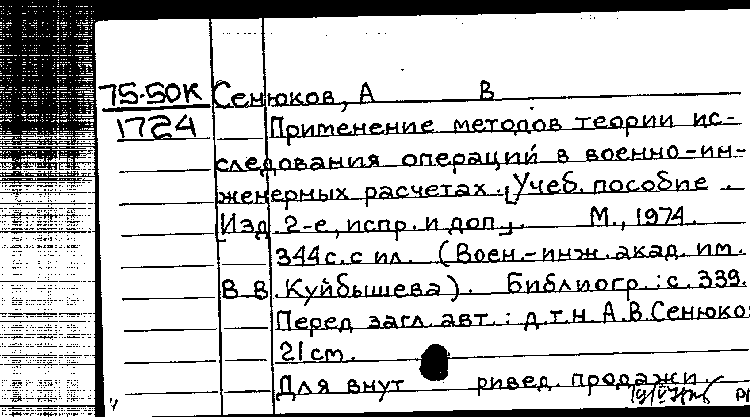 75-50К Сенюков, А В
1724 Применение методов теории ис-
следования операций в военно-ин-
женерных расчетах. [Учеб. пособие.
[Изд. 2-е, испр. и доп.]. М., 1974.
344 с. с ил. (Воен.-инж. акад. им.
В. В. Куйбышева). Библиогр.: с. 339.
Перед загл. авт.: д.т.н А.В. Сенюко
21 см.
Для внут ривед. продажи